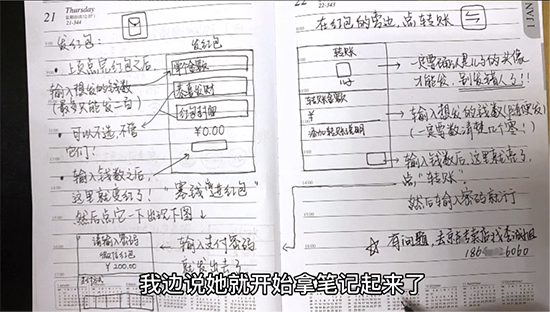 21
Thursday
21-344
发红包:
• 上页点完红包之后,
输入想发的钱数
(最多只能发二百)
• 可以不选,不管
它们!
• 输入钱数后,
这里就变红了!
然后点它一下出现下图↓
发红包
单个金额
恭喜发财
红包封面
¥0.00
"塞钱进红包"
请输入密码
微信红包
¥200.00
输入支付密码
就发出去了
22-343
在红包的旁边,点,转账
转账
转账金额
¥
添加转账说明
一定要确认是儿子的头像
才能发,别发错人了!!
输入想发的钱数(随便发)
(一定要数清楚几个零!)
输入钱数后,这里就亮了,
点"转账"
然后输入密码就行
☆ 有问题,去京东
6060
我边说她就开始拿笔记起来了